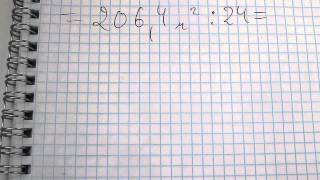 = 206,4 м² : 24 =